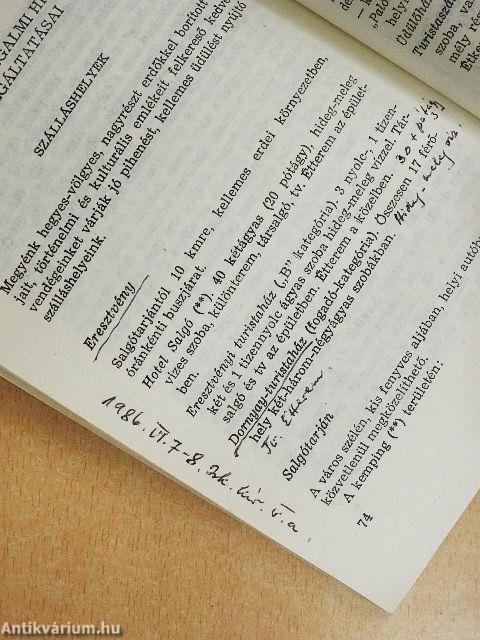 GALMI HI
GÁLTATÁSAI
SZÁLLÁSHELYEK
Megyénk hegyes-völgyes, nagyrészt erdőkkel borított
jait, történelmi és kulturális emlékeit felkereső kedve
vendégeinket várják jó pihenést, kellemes üdülést nyújtó
szálláshelyeink.
Eresztvény
Salgótarjántól 10 kmre, kellemes erdei környezetben,
óránkénti buszjárat.
Hotel Salgó (**) 40 kétágyas (20 pótágy), hideg-meleg
vizes szoba, különterem, társalgó, tv. Étterem az épület-
ben.
Eresztvényi turistaház („B" kategória), 3 nyolc, 1 tizen-
két és 1 tizennyolc ágyas szoba hideg-meleg vízzel. Tár-
salgó és tv az épületben. Étterem a közelben.
30 + pótágy
Dornyay-turistaház (fogadó-kategória). Összesen 17 férő-
hely két-három-négyágyas szobákban.
Hideg-meleg víz.
Tv. Étterem
Salgótarján
A város szélén, kis fenyves aljában, helyi autóbu
közvetlenül megközelíthető.
A kemping (**) területén:
74
1986. VI. 7-8.
„Palo
helyi
Üdülőhá
Turistaszál
szoba,
mély rés
Étke
Antikvárium.hu